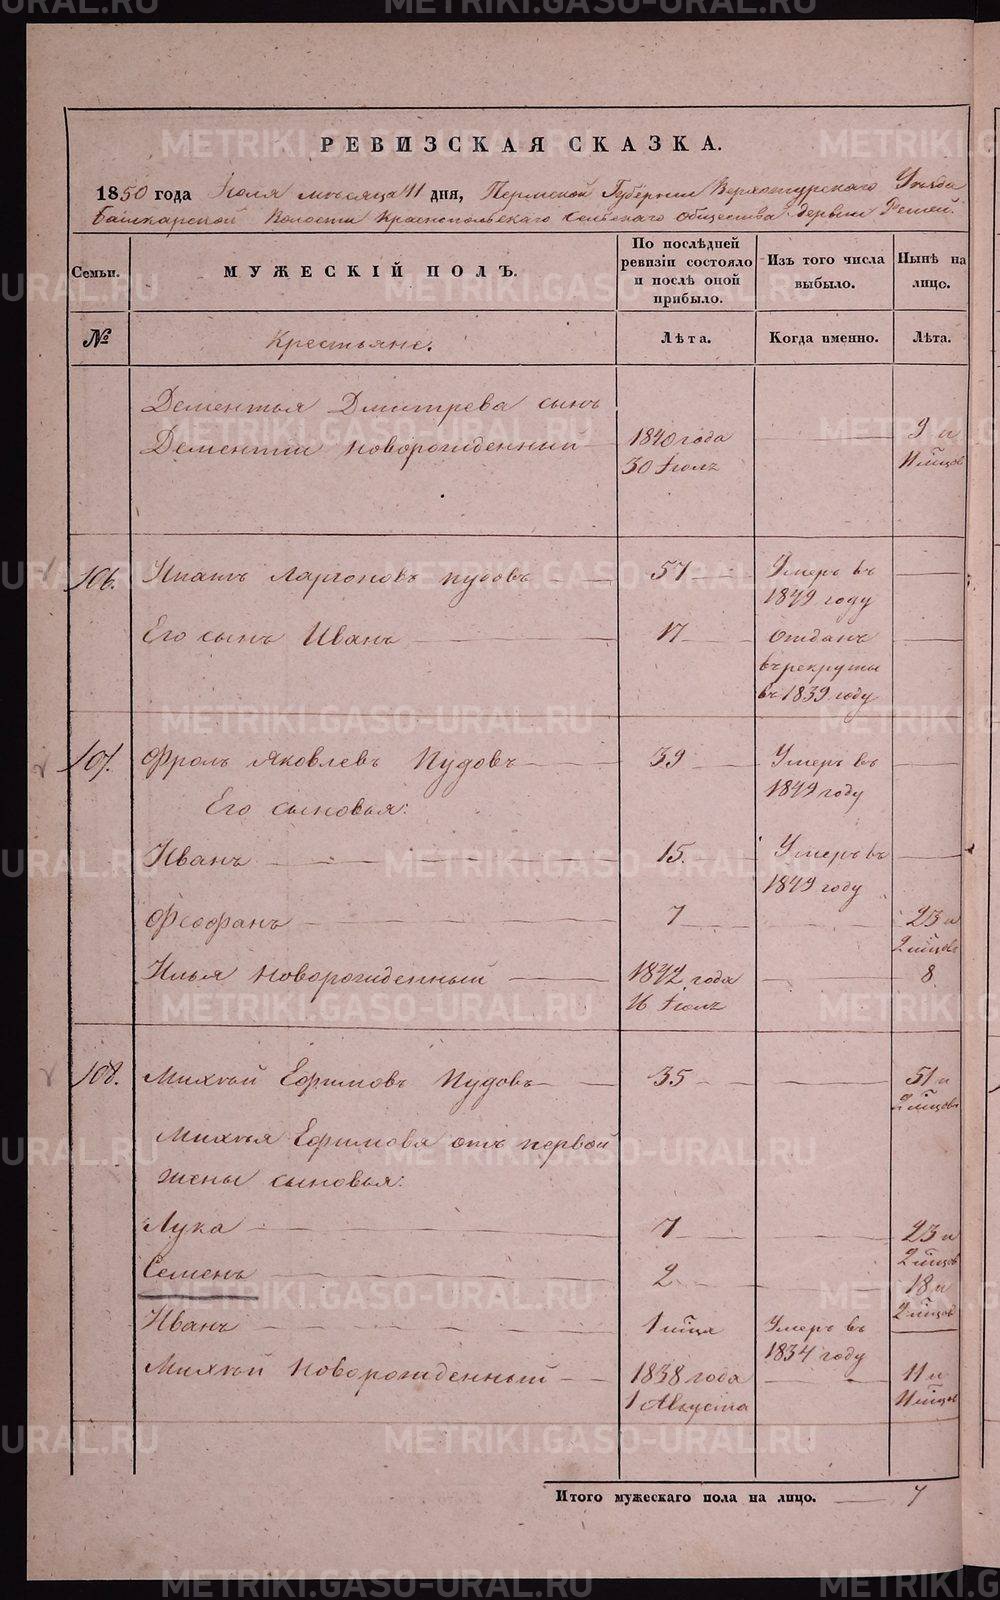 РЕВИЗСКАЯ СКАЗКА.
1850 года Іюля мѣсяца 11 дня, Пермской Губерніи Верхотурскаго Уѣзда
Башкарской Волости Краснопольскаго Сельскаго Общества дервни Решей.
Семьи.
МУЖЕСКІЙ ПОЛЪ.
По послѣдней ревизіи состояло и послѣ оной прибыло.
Изъ того числа выбыло.
Нынѣ на лицо.
№
Крестьяне.
Лѣта.
Когда именно.
Лѣта.
Дементья Дмитрева сынъ
Дементій новорожденный 1840 года 9 и
30 Іюля 11 мцов
106. Игнатъ Ларіоновъ Пудовъ 57 Умеръ въ
1849 году
Его сынъ Иванъ 17 Отданъ
въ рекруты
въ 1839 году
107. Фролъ Яковлевъ Пудовъ 39 Умеръ въ
1849 году
Его сыновья:
Иванъ 15. Умеръ въ
1849 году
Феофанъ 7 23 и
2 мцов
Илья новорожденный 1842 года 8
16 Іюля
108. Михѣй Ефимовъ Пудовъ 35 51 и
2 мцов
Михѣя Ефимова отъ первой
жены сыновья:
Лука 7 23 и
2 мцов
Семенъ 2 18 и
2 мцов
Иванъ 1 мца Умеръ въ
1834 году
Михѣй новорожденный 1838 года 11 и
1 Августа 11 мцов
Итого мужескаго пола на лицо. 7
METRIKI.GASO-URAL.RU